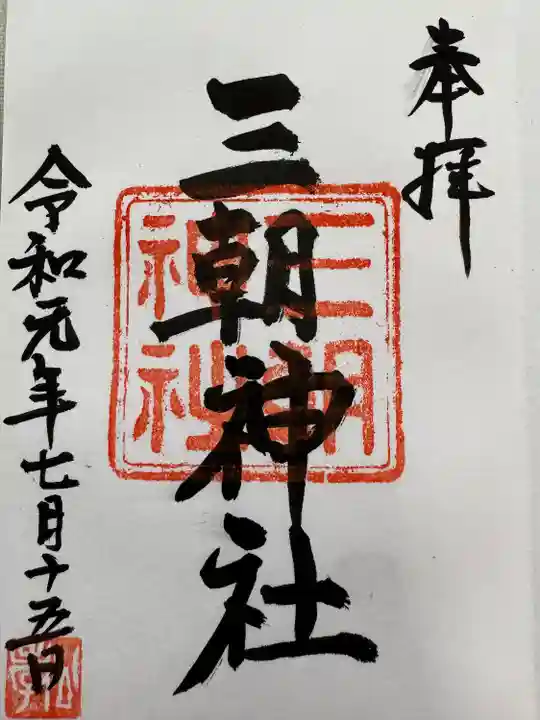 奉拝
三朝神社
三朝
神社
令和元年七月十五日